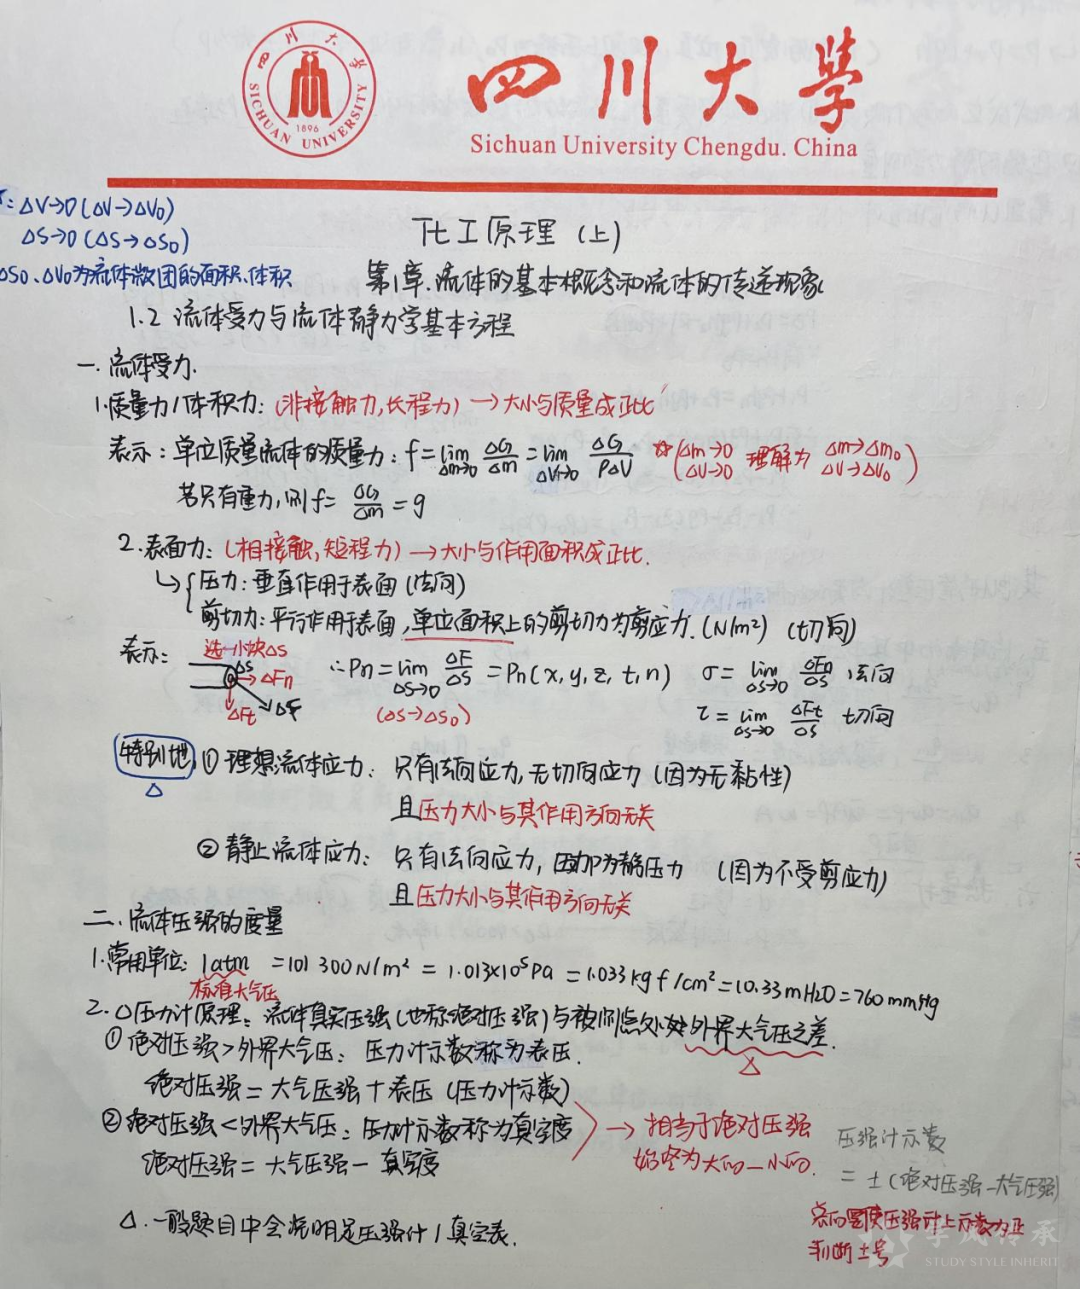 四川大学
SICHUAN UNIVERSITY
1896
四川大学
Sichuan University Chengdu. China
：ΔV→0（ΔV→ΔV₀）
ΔS→0（ΔS→ΔS₀）
ΔS₀、ΔV₀为流体微团的面积、体积
化工原理（上）
第1章.流体的基本概念和流体的传递现象
1.2 流体受力与流体静力学基本方程
一.流体受力.
1.质量力/体积力：（非接触力,长程力）→大小与质量成正比
表示：单位质量流体的质量力：f=lim Δm→0 ΔG/Δm = lim ΔV→0 ΔG/ρΔV ☆（Δm→0 ΔV→0 理解为 Δm→Δm₀ ΔV→ΔV₀）
若只有重力,则f= ΔG/Δm = g
2.表面力：（相接触,短程力）→大小与作用面积成正比.
↳{压力：垂直作用于表面（法向）
剪切力：平行作用于表面,单位面积上的剪切力为剪应力.（N/m²）（切向）
表示：
选一小块ΔS
ΔS
ΔFn
ΔFt
ΔF
∴Pn=lim ΔS→0 ΔF/ΔS = Pn(x,y,z,t,n) σ= lim ΔS→0 ΔFn/ΔS 法向
（ΔS→ΔS₀）
τ= lim ΔS→0 ΔFt/ΔS 切向
特别地,①理想流体应力：只有法向应力,无切向应力（因为无黏性）
Δ
且压力大小与其作用方向无关
②静止流体应力：只有法向应力，应力P为静压力（因为不受剪应力）
且压力大小与其作用方向无关
二.流体压强的度量
1.常用单位：1atm =101 300N/m² = 1.013×10⁵Pa =1.033kgf/cm²=10.33mH2O=760mmHg
标准大气压
2.△压力计原理：流体真实压强（也称绝对压强）与被测点处外界大气压之差.
Δ
①绝对压强>外界大气压：压力计示数称为表压.
绝对压强=大气压强+表压（压力计示数）
②绝对压强<外界大气压：压力计示数称为真空度
绝对压强=大气压强-真空度
→相当于绝对压强
始终为大的-小的.
压强计示数
=±（绝对压强-大气压强）
Δ.一般题目中会说明是压强计/真空表.
压强计上示数为正
判断±号
学风传承
STUDY STYLE INHERIT